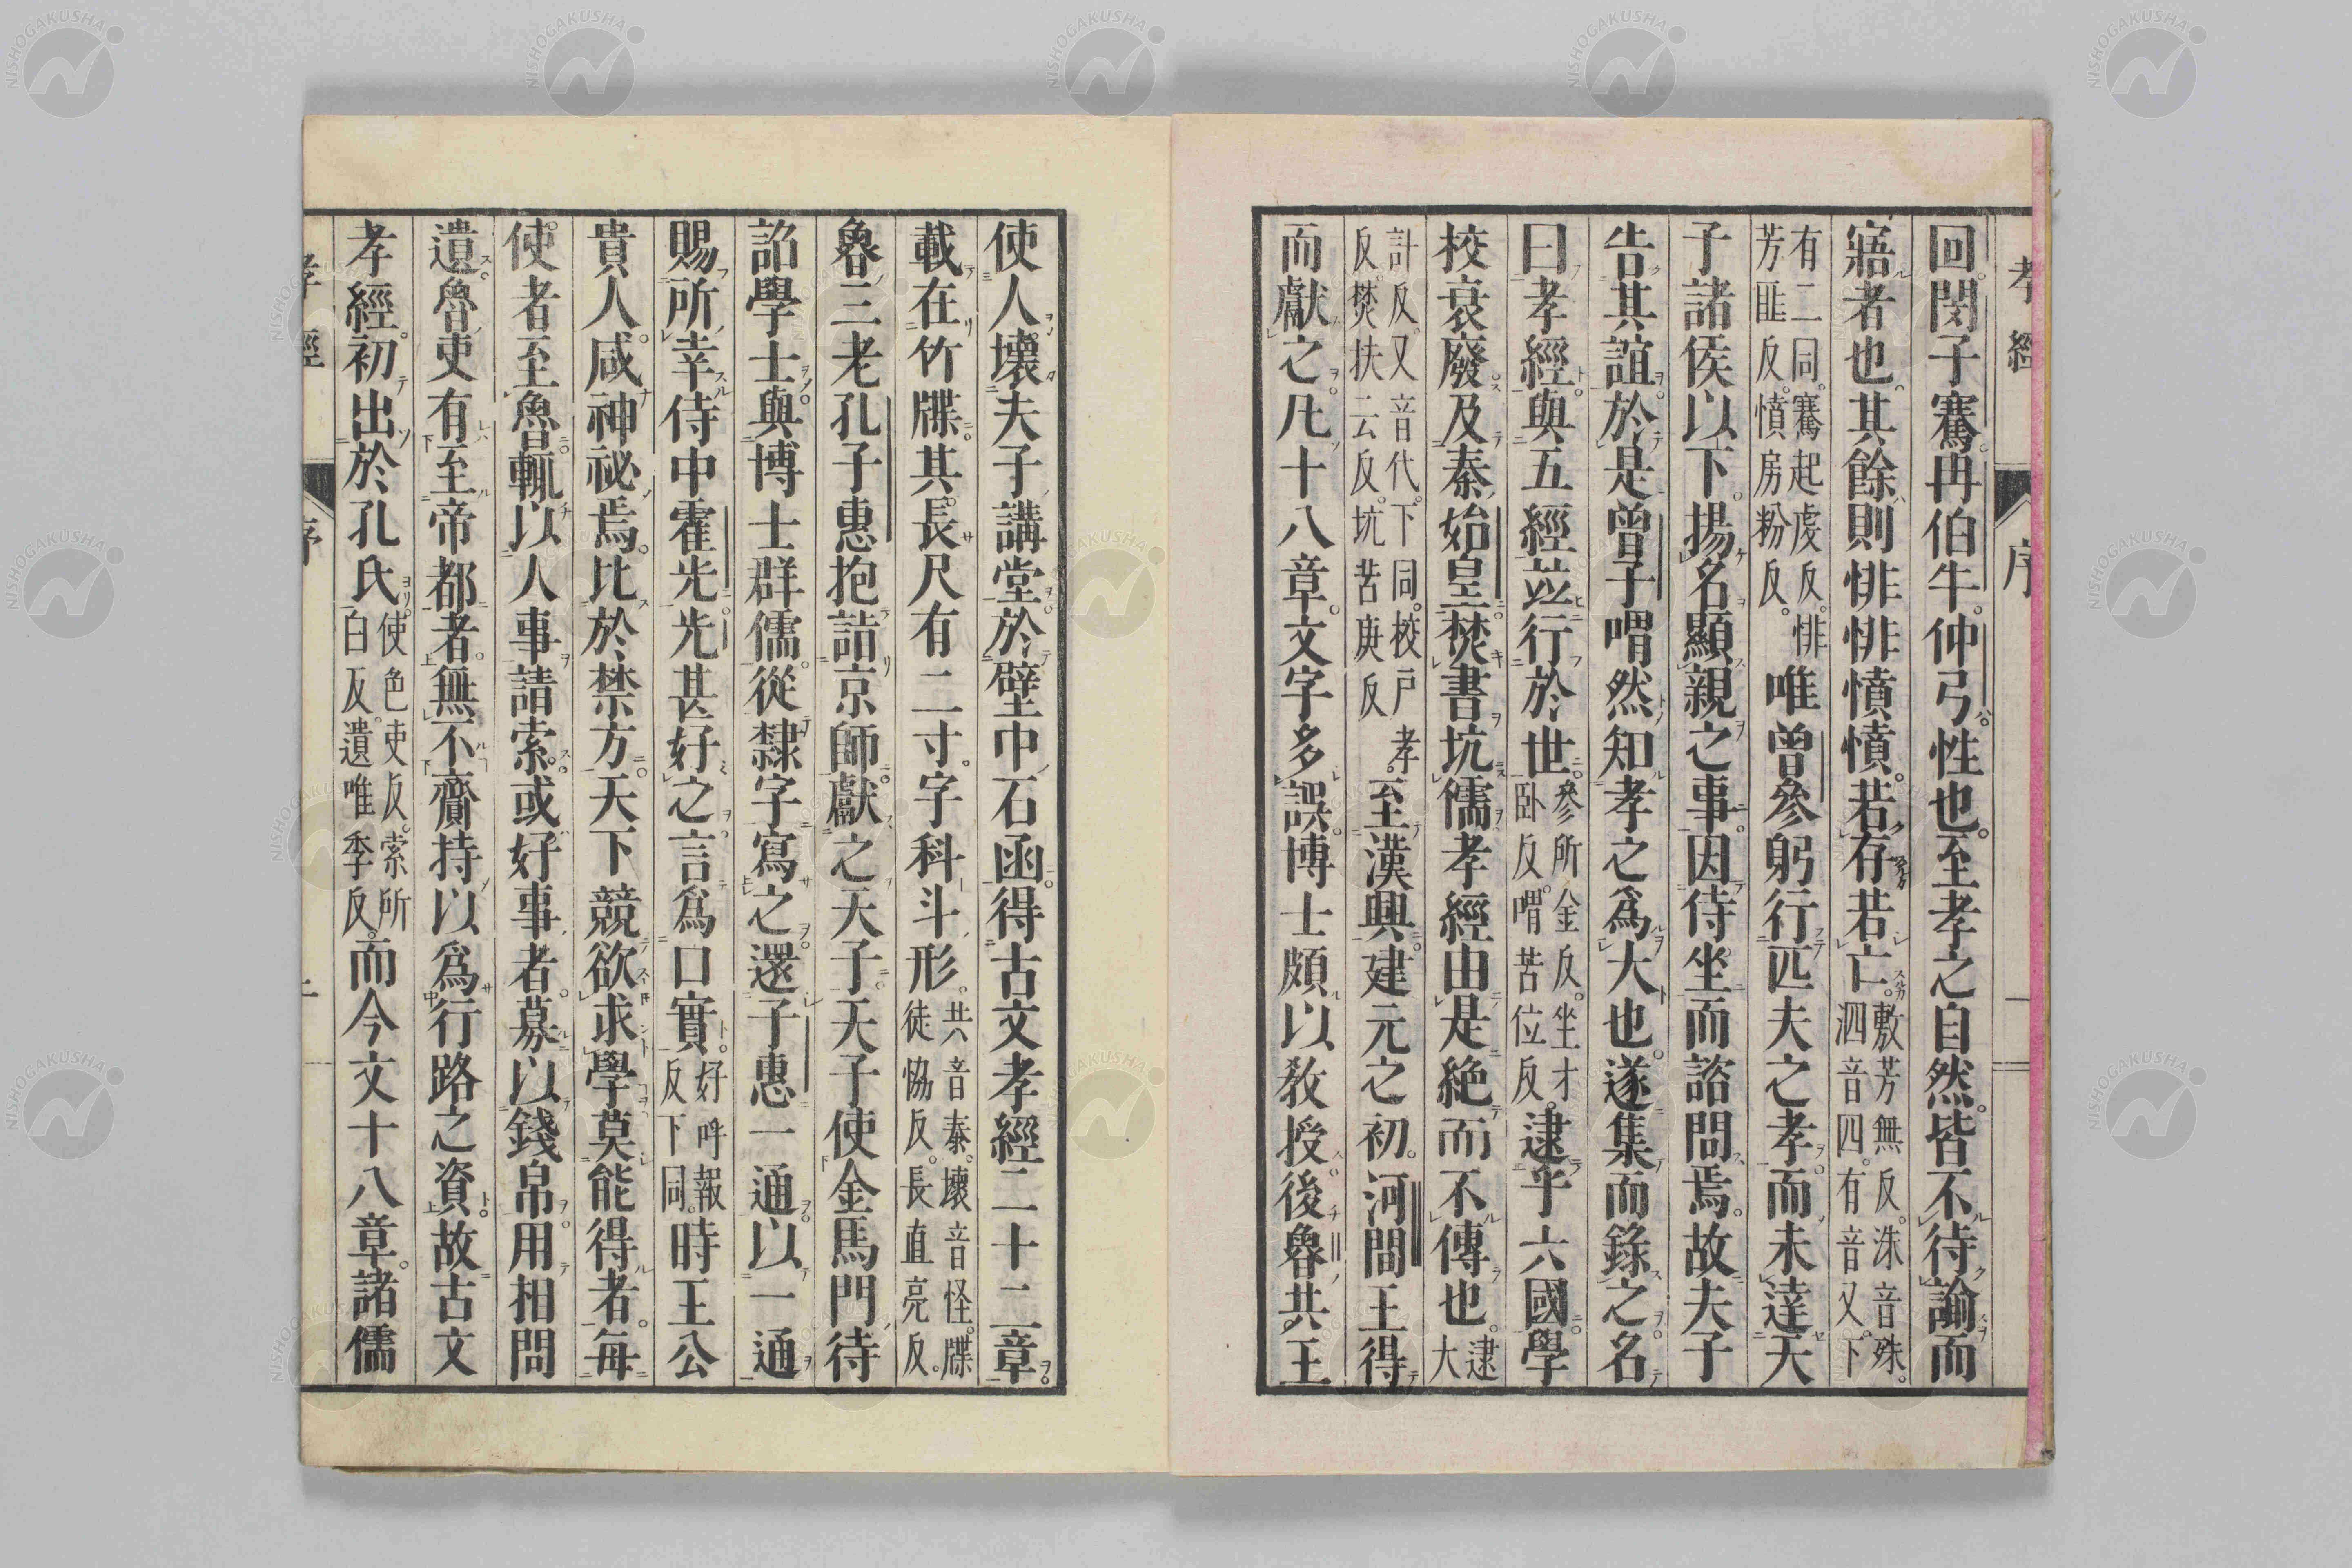 孝經 序 一
回閔子騫冉伯牛仲弓性也至孝之自然皆不待諭而
寤者也其餘則悱悱憤憤若存若亡敷芳無反洙音殊泗音四有音又下
有二同騫起虔反悱芳匪反憤房粉反唯曾參躬行匹夫之孝而未達天
子諸侯以下揚名顯親之事因侍坐而諮問焉故夫子
告其誼於是曾子喟然知孝之爲大也遂集而錄之名
曰孝經與五經竝行於世參所金反坐才卧反喟苦位反逮乎六國學
校衰廢及秦始皇焚書坑儒孝經由是絶而不傳也逮大
計反又音代下同校戶孝反焚扶云反坑苦庚反至漢興建元之初河間王得
而獻之凡十八章文字多誤博士頗以敎授後魯共王
使人壞夫子講堂於壁中石函得古文孝經二十二章
載在竹牒其長尺有二寸字科斗形共音恭壞音怪牒徒協反長直亮反
魯三老孔子惠抱詣京師獻之天子天子使金馬門待
詔學士與博士群儒從隸字寫之還子惠一通以一通
賜所幸侍中霍光光甚好之言爲口實好呼報反下同時王公
貴人咸神祕焉比於禁方天下競欲求學莫能得者每
使者至魯輒以人事請索或好事者募以錢帛用相問
遺魯吏有至帝都者無不齎持以爲行路之資故古文
孝經初出於孔氏使色吏反索所白反遺唯季反而今文十八章諸儒
孝經 序